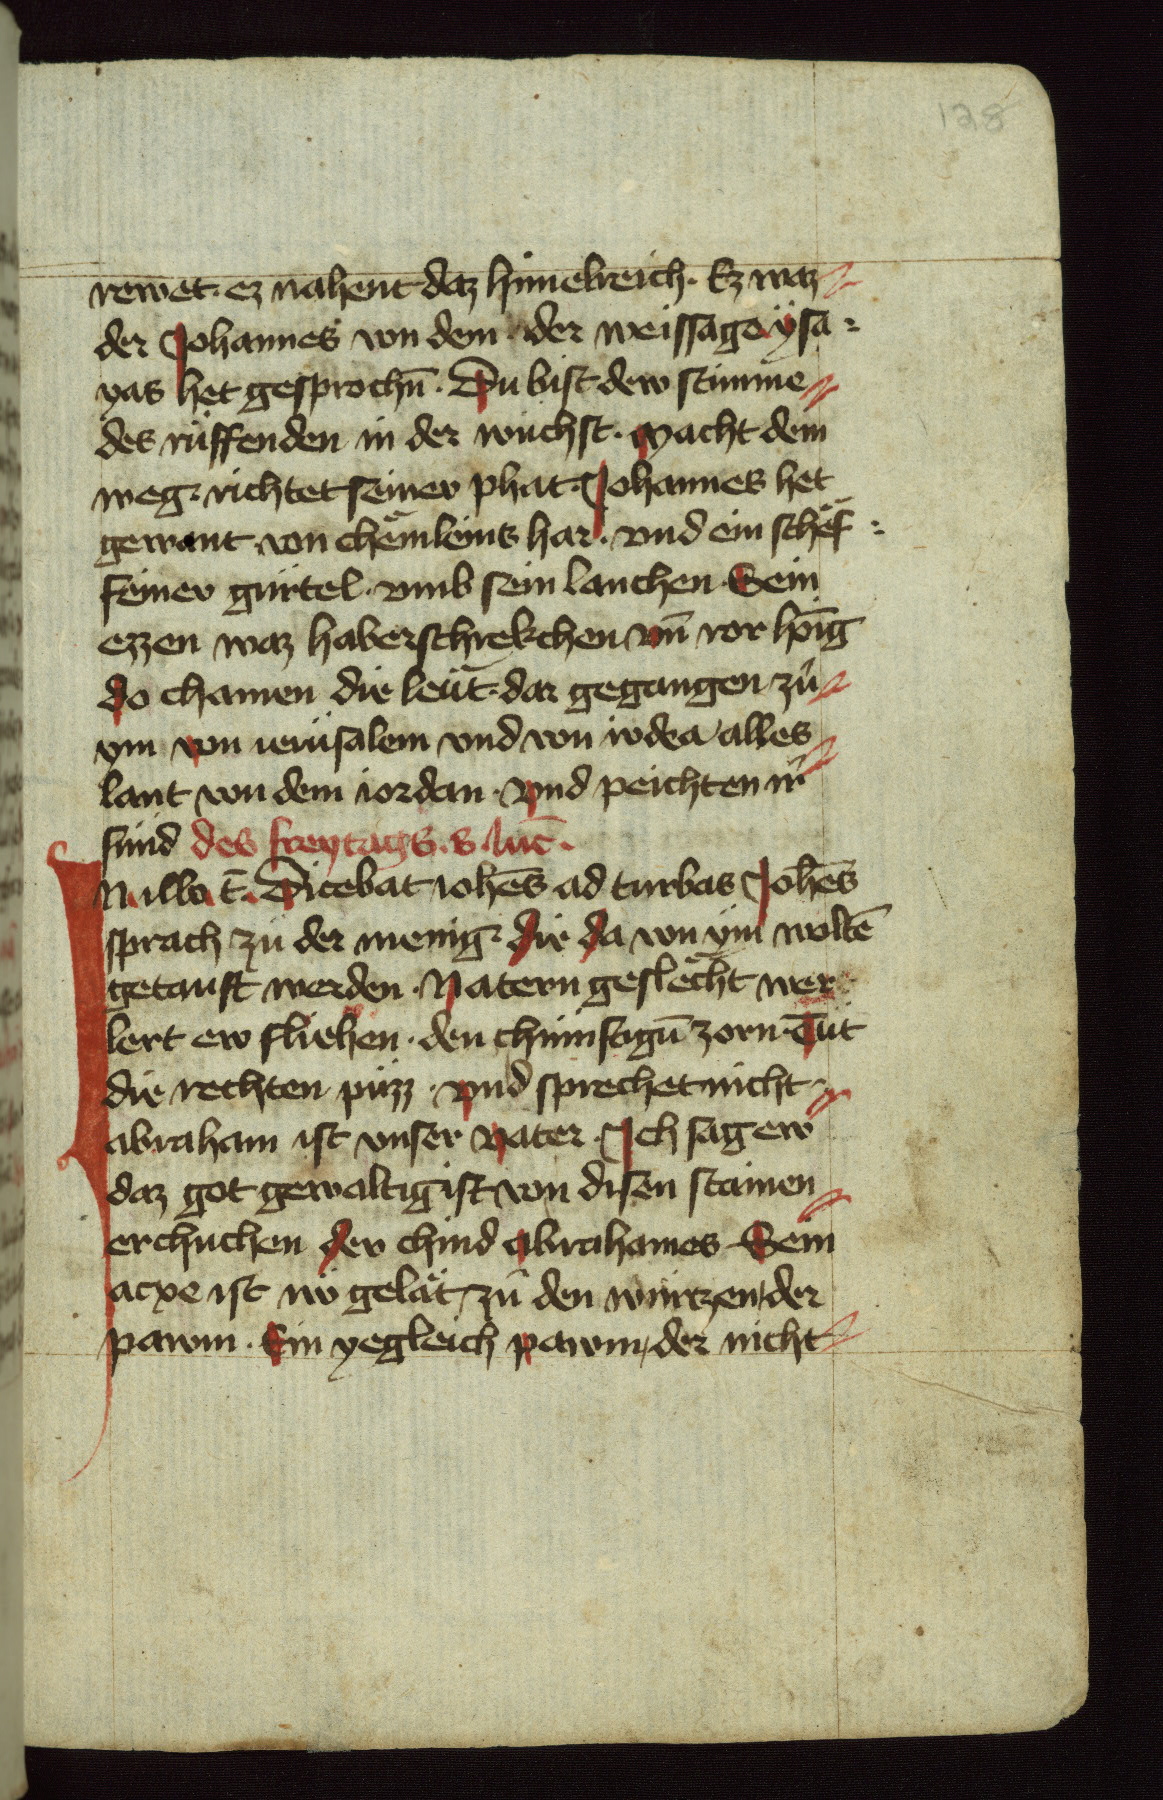 128
rewet. ez nahent daz himelreich. Ez waz
der Johannes von dem. der weissage ysa-
yas het gesprochn̄. Du bist dew stimme
des rüffenden in der wüchst. Macht dem
weg. richtet seiner phat. Johannes het
gewant von chëmleins har. vnd ein schëf-
feiner gürtel. vmb sein lanchen. Sein
ezzen waz haberschrekchen vn̄ ror hṗig
do chamen die leüt. dar gegangen zů
ym von ierüsalem vnd von iudea alles
lant von dem iordan. Vnd peichten ir
sünd des freytags. s. luc̄.
In illo t̄. Dicebat ioh̄es ad turbas Joh̄es
sprach zů der menig. die da von ẏm wolt̄e
getauft werden. Natern geslëcht wer
lert ew fliehen. den chümfagn̄ zorn. Tůt
die rechten půzz. vnd sprechet nicht
abraham ist vnser vater. Ich sag ew
daz got gewaltig ist von disen stainen
erchuchen der chind abrahames. Sein
acxe ist nv gelät zů den würtzen der
pawm. Ein yegleich pawm, der nicht